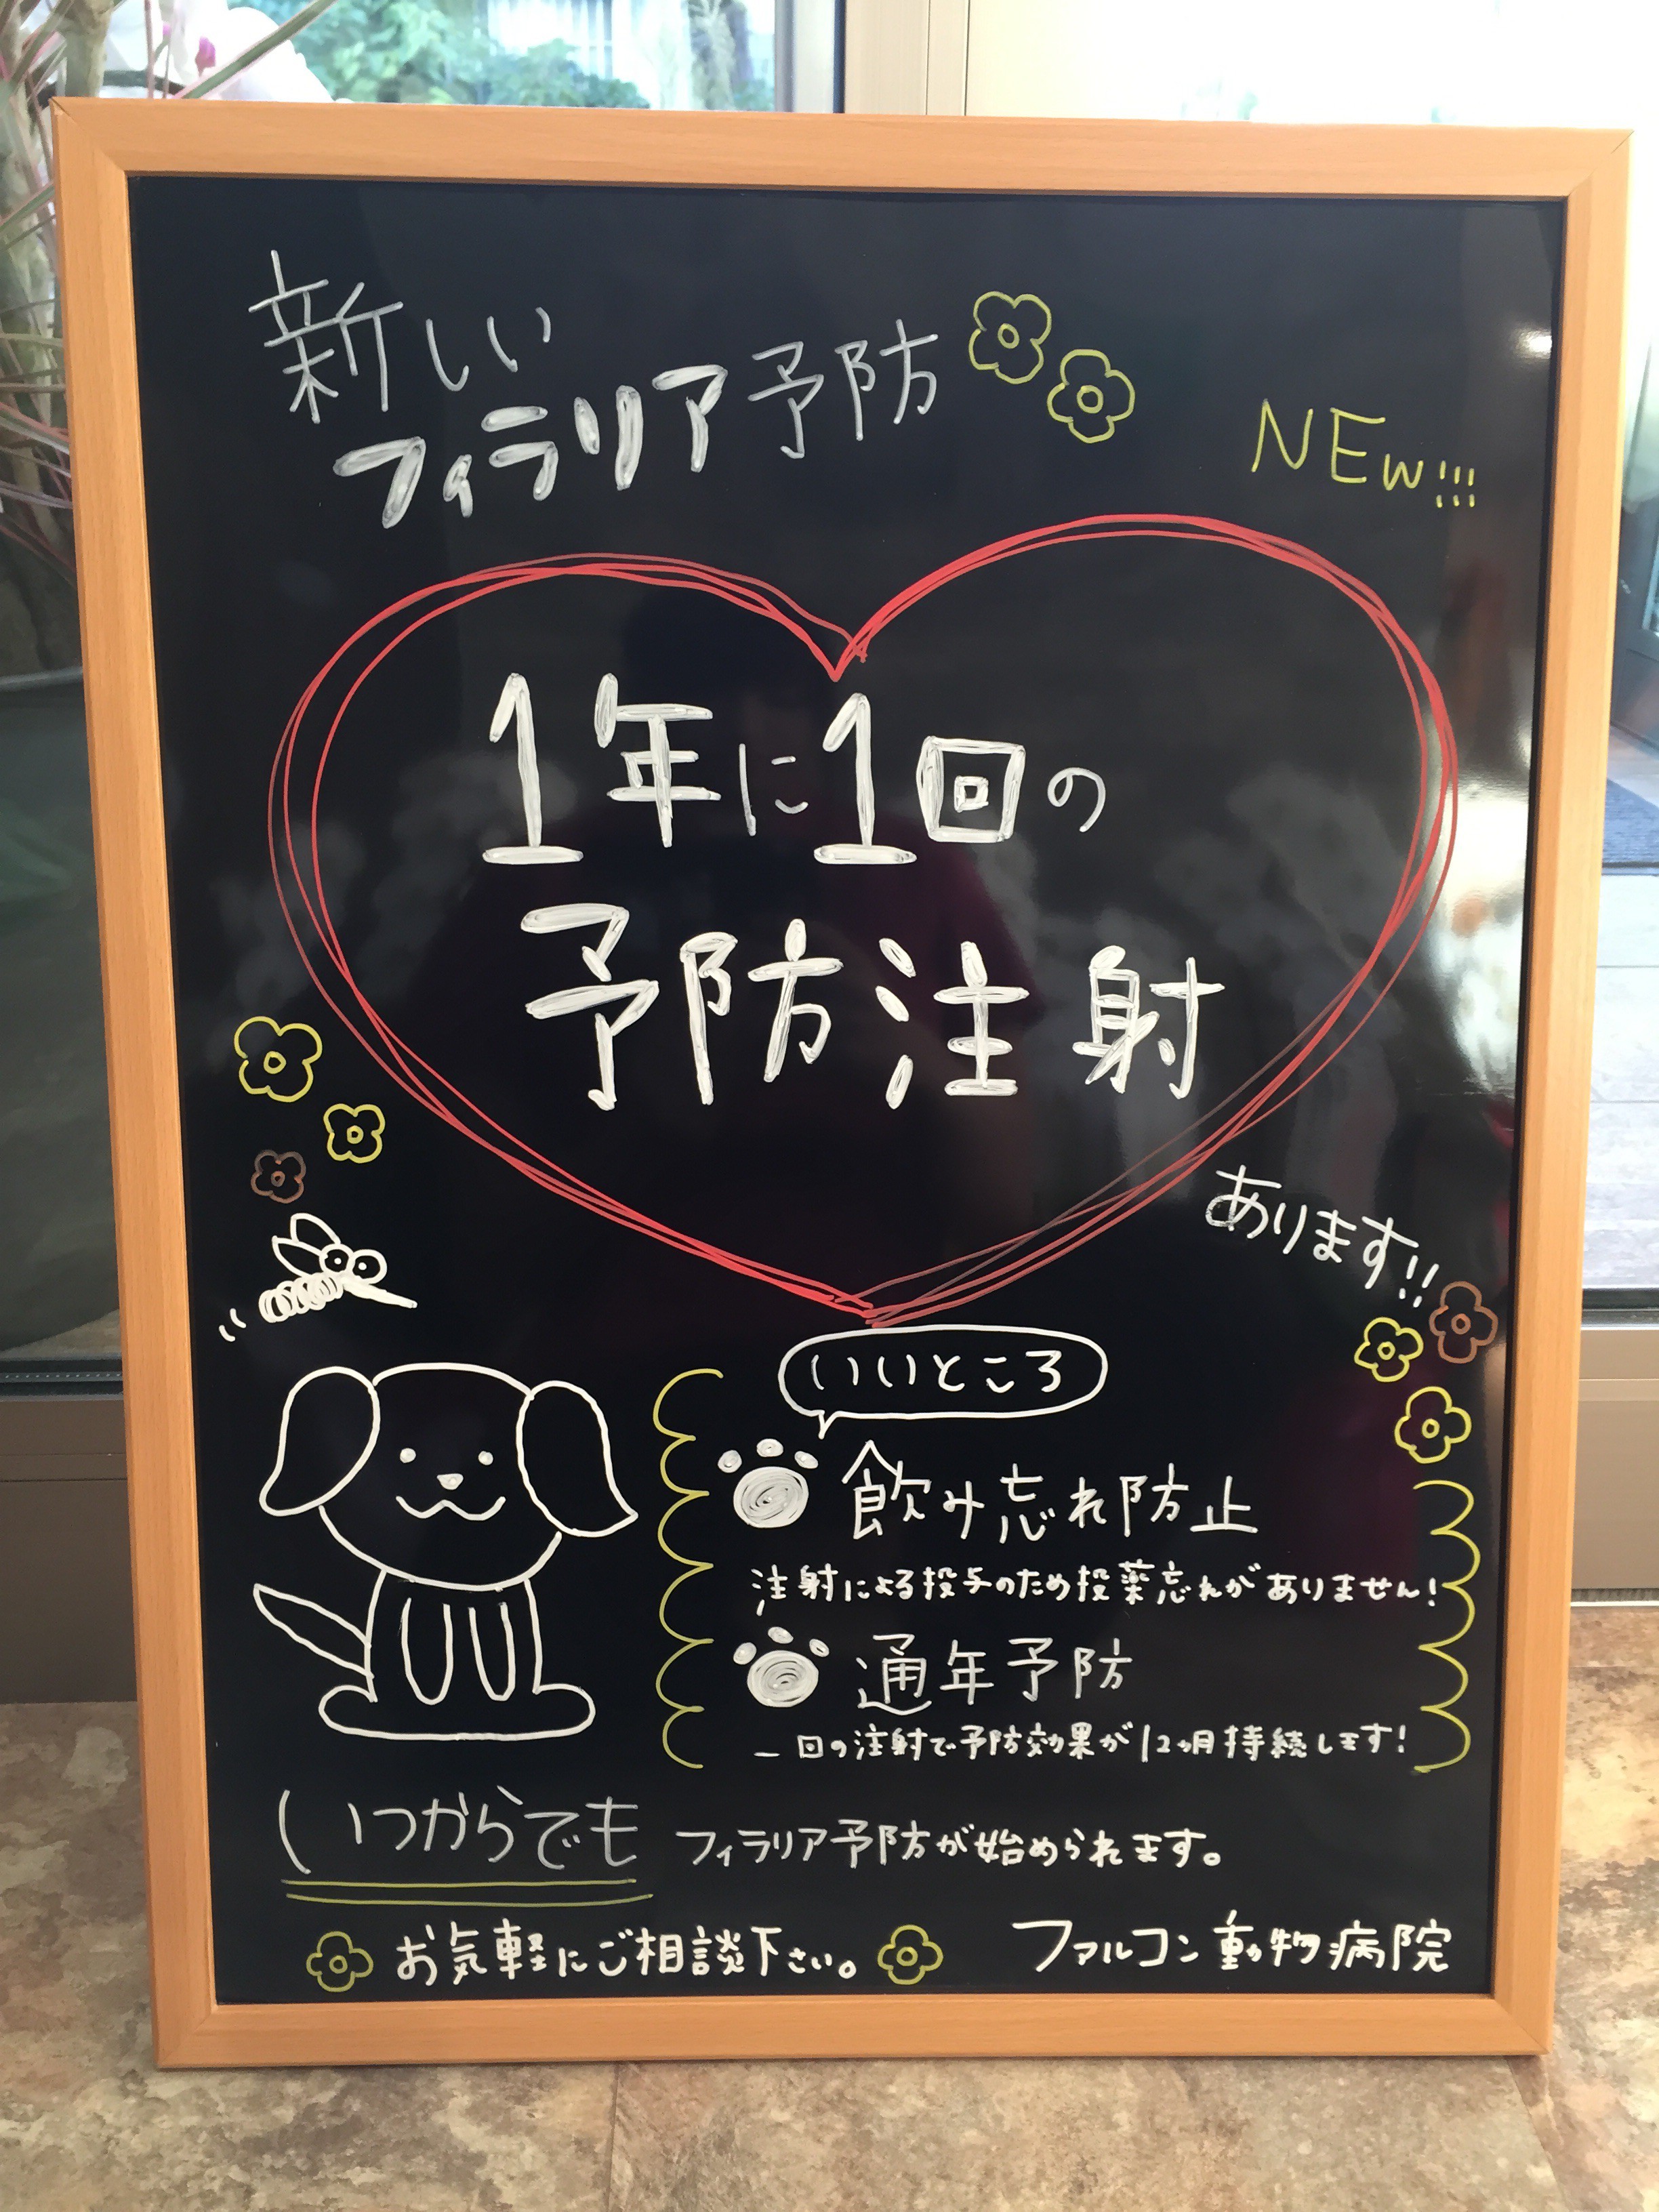 新しい
フィラリア予防
NEW!!!
1年に1回の
予防注射
あります!!
いいところ
飲み忘れ防止
注射による投与のため投薬忘れがありません!
通年予防
一回の注射で予防効果が12ヵ月持続します!
いつからでも フィラリア予防が始められます。
お気軽にご相談下さい。 ファルコン動物病院